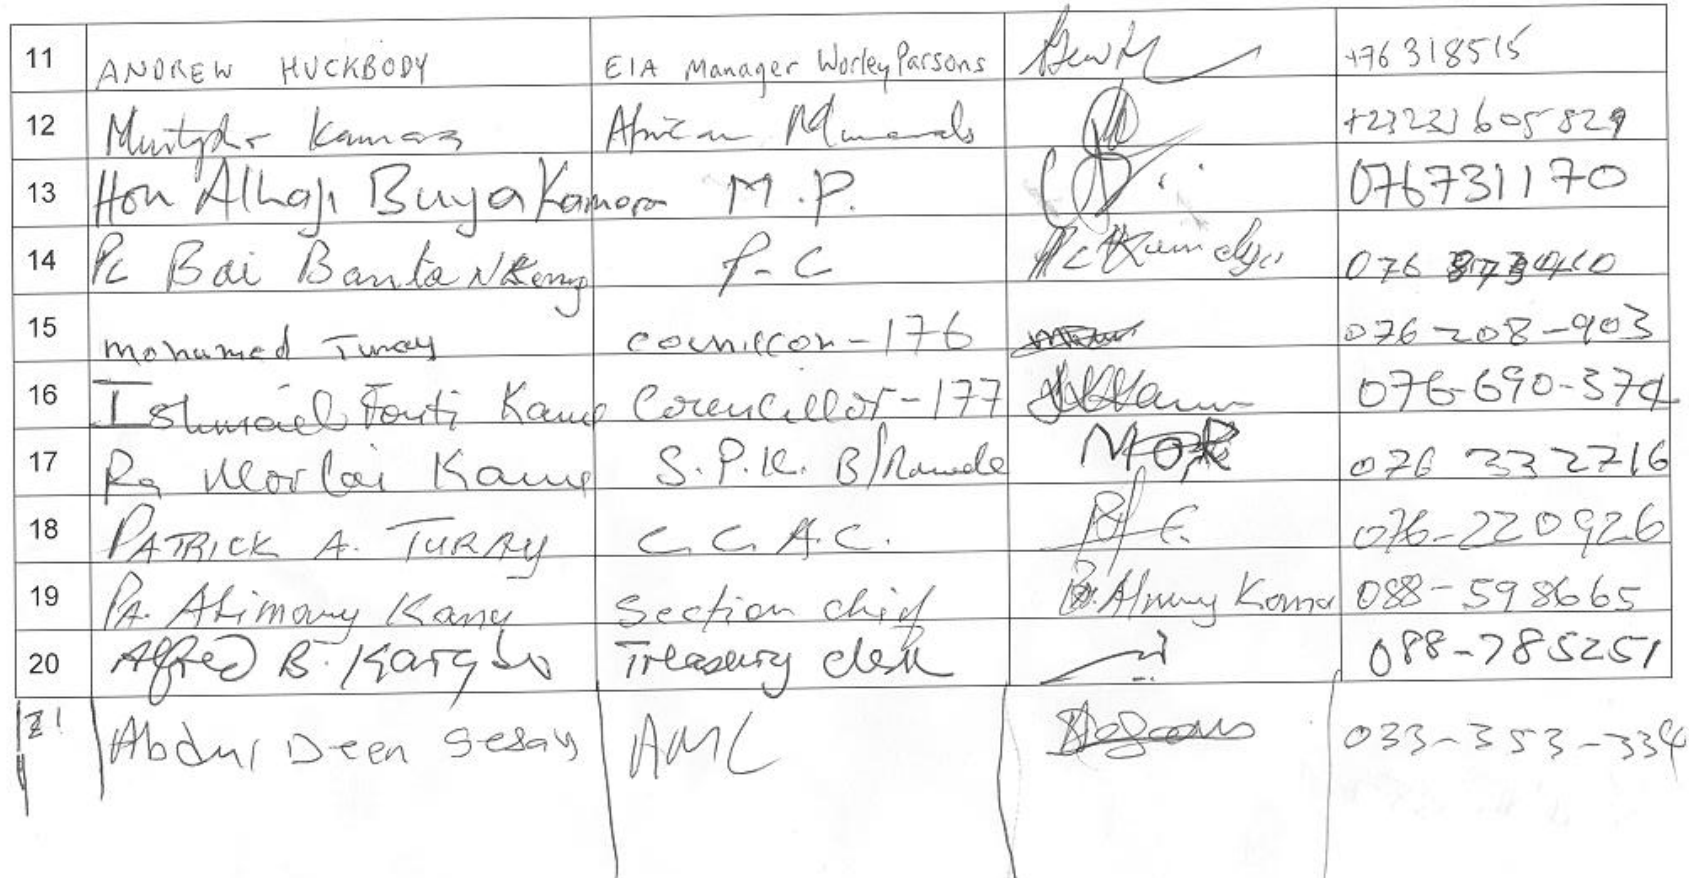 11 ANDREW HUCKBODY EIA Manager WorleyParsons +76 318515
12 Kamara African Minerals +23223 1605829
13 Hon Alhaji Buya Kamara M.P. 076731170
14 Pc Bai Banta P-C 076
15 mohamed Turay 176 076-208-903
16 Ishmael Fonti Councillor-177 076-690-374
17 Pa Morlai S.P.K. 076 332716
18 PATRICK A. TURAY C.C.A.C. 076-220926
19 PA. Alimamy Section chief 088-598665
20 Alfred B. Kargbo Treasury clerk 088-785251
21 Abdul Deen Sesay AML 033-353-334